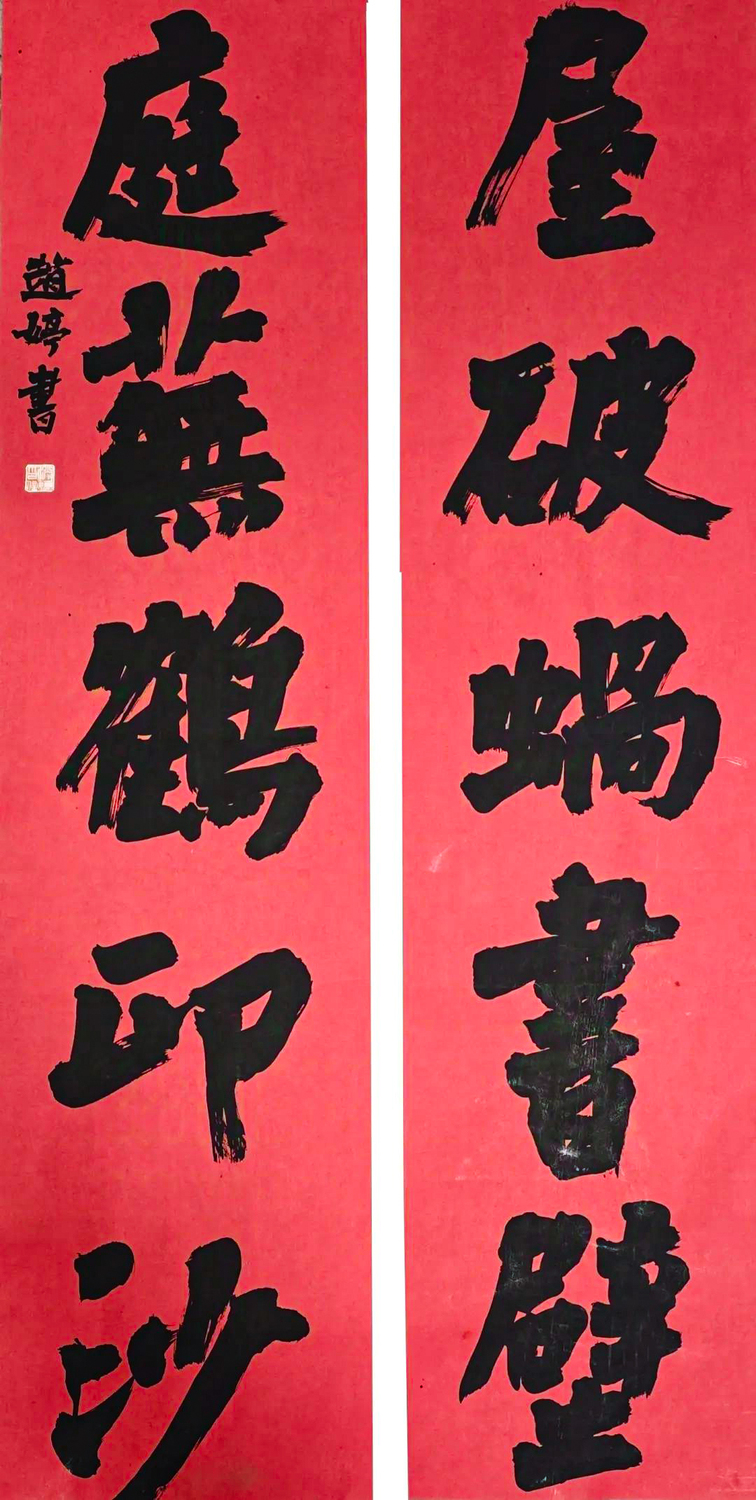 屋破蝸書壁
庭蕪鶴印沙
趙婷書